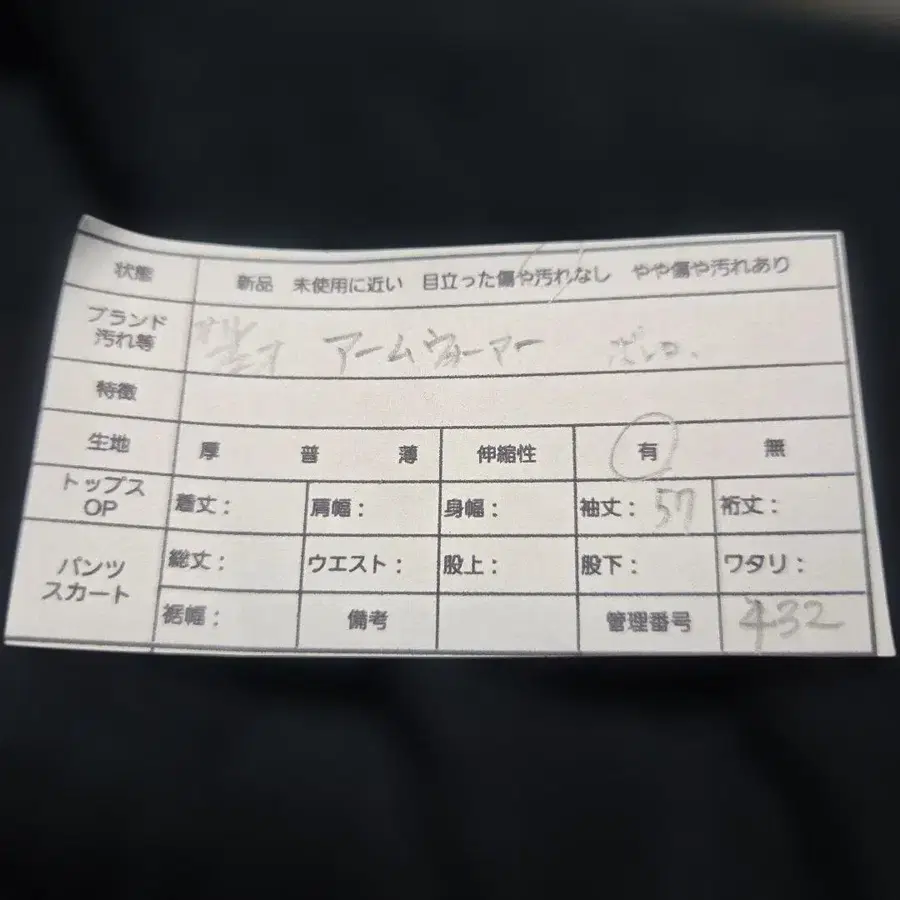 状態 新品 未使用に近い 目立った傷や汚れなし やや傷や汚れあり
ブランド
汚れ等 アームウォーマー ボレロ、
特徴
生地 厚 普 薄 伸縮性 有 無
トップス
OP 着丈: 肩幅: 身幅: 袖丈:57 裄丈:
パンツ
スカート 総丈: ウエスト: 股上: 股下: ワタリ:
裾幅: 備考 管理番号 432